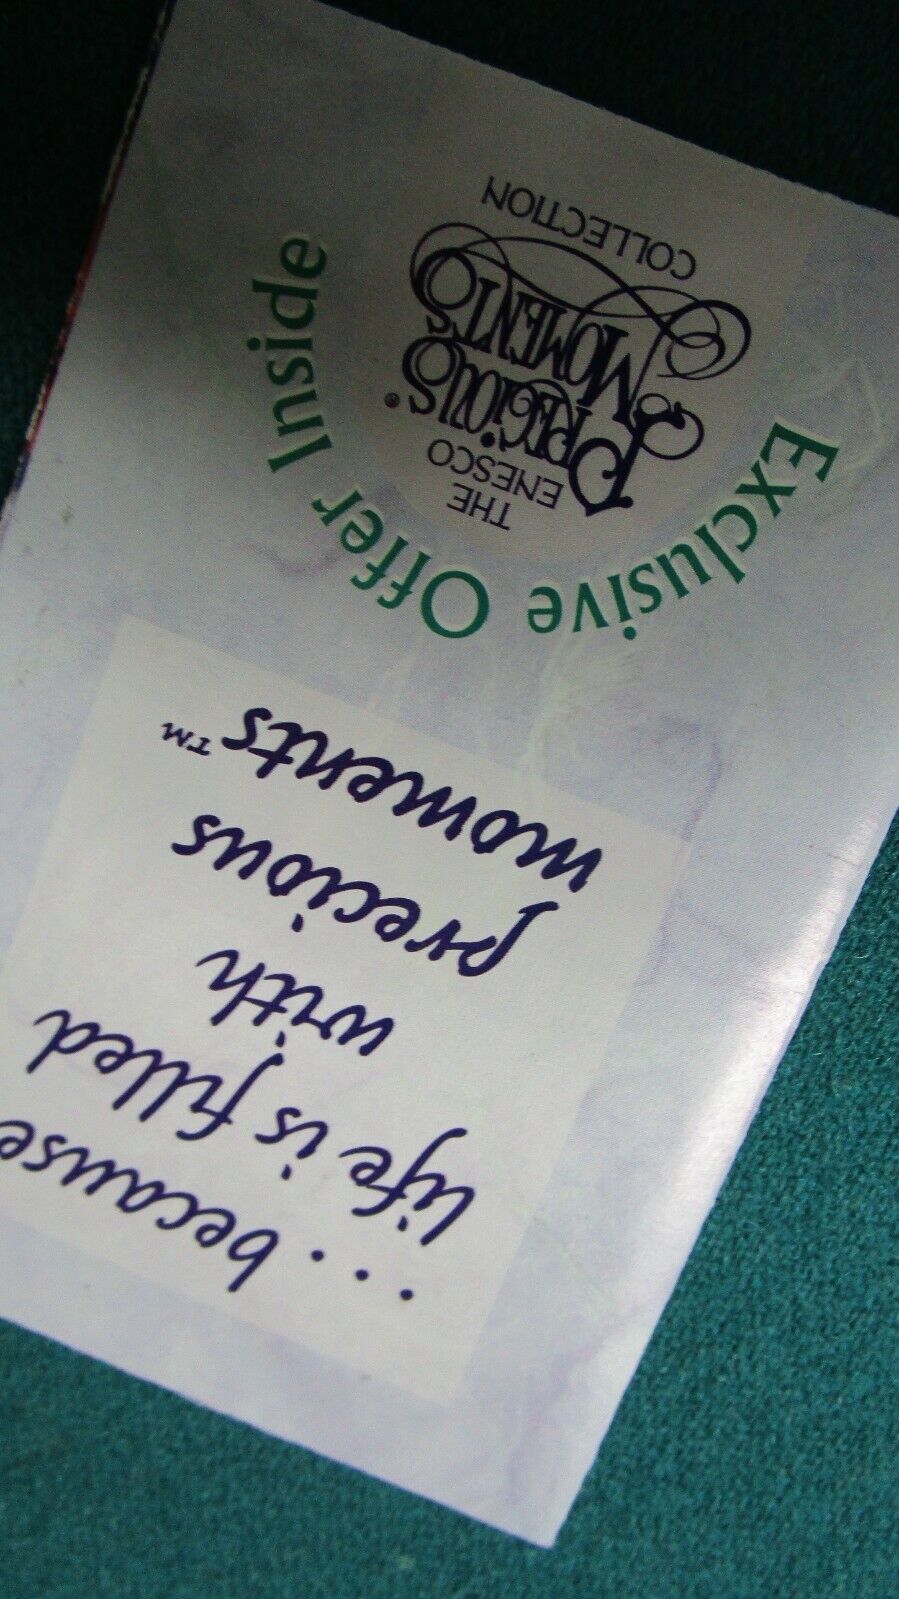 ...because
life is filled
with
precious
moments™
Exclusive Offer Inside
THE
ENESCO
PRECIOUS®
MOMENTS
COLLECTION